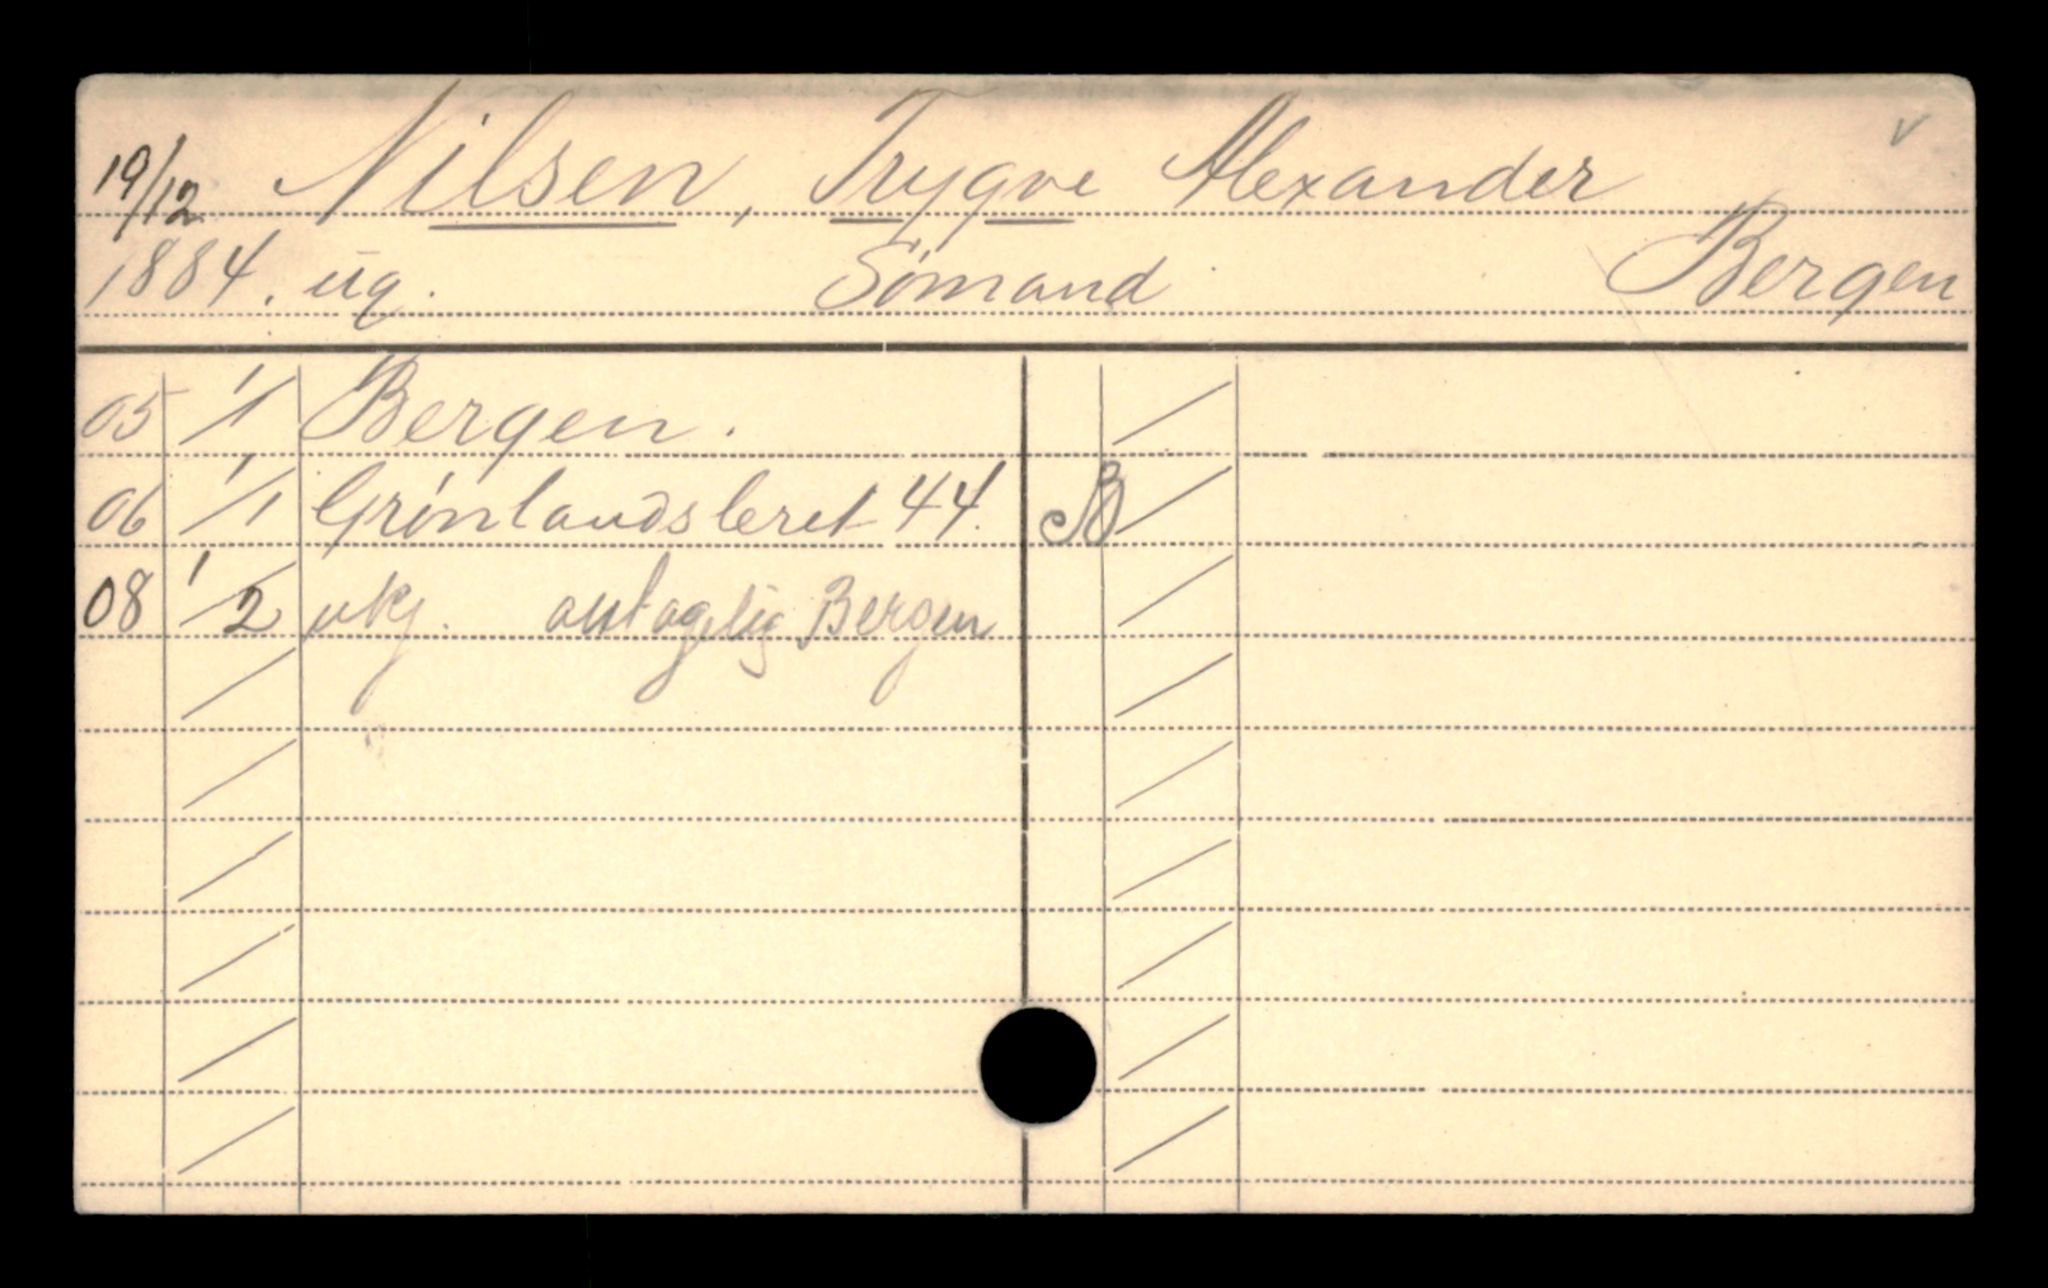 19/12 Nilsen, Trygve Alexander v
1884. ug. Sömand Bergen
05 1/1 Bergen.
06 1/1 Grönlandsleret 44.
08 1/2 ukj. antagelig Bergen